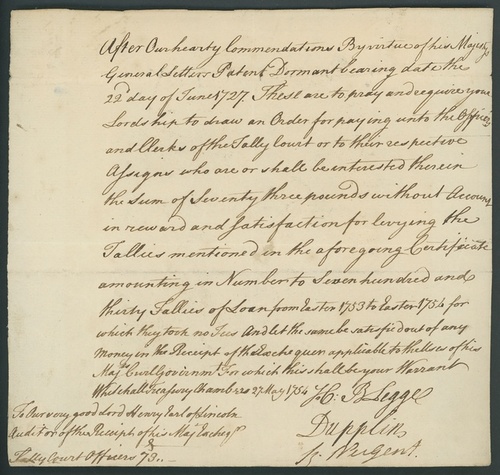 After Our hearty Commendations By virtue of his Majest's
General Letters Patent Dormant bearing date the
22d day of June 1727. These are to pray and require your
Lordship to draw an Order for paying unto the Officers
and Clerks of the Tally Court or to their respective
Assigns who are or shall be interested therein
the Sum of Seventy three pounds without Account
in reward and Satisfaction for levying the
Tallies mentioned in the aforegoing Certificate
amounting in Number to Seven hundred and
thirty Tallies of Loan from Easter 1753 to Easter 1754 for
which they took no Fees And let the same be satisfied out of any
money in the Receipt of the Exchequer applicable to the Uses of his
Majts Civil Governmt For which this shall be your Warrant
Whitehall Treasury Chambers 27 May 1754
H: B Legge
Dupplin
R. Nugent.
To Our very good Lord Henry Earl of Lincoln
Auditor of the Receipt of his Maj Excheqr
£
Tally Court Officers 73..